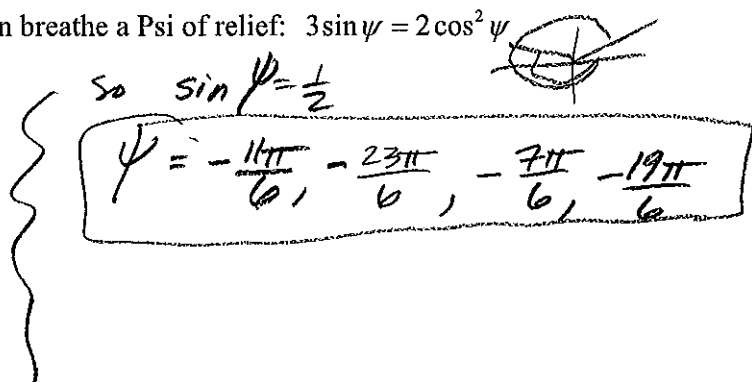 n breathe a Psi of relief: 3 sin ψ = 2 cos² ψ
So sin ψ = 1/2
ψ = - 11π/6, - 23π/6, - 7π/6, - 19π/6